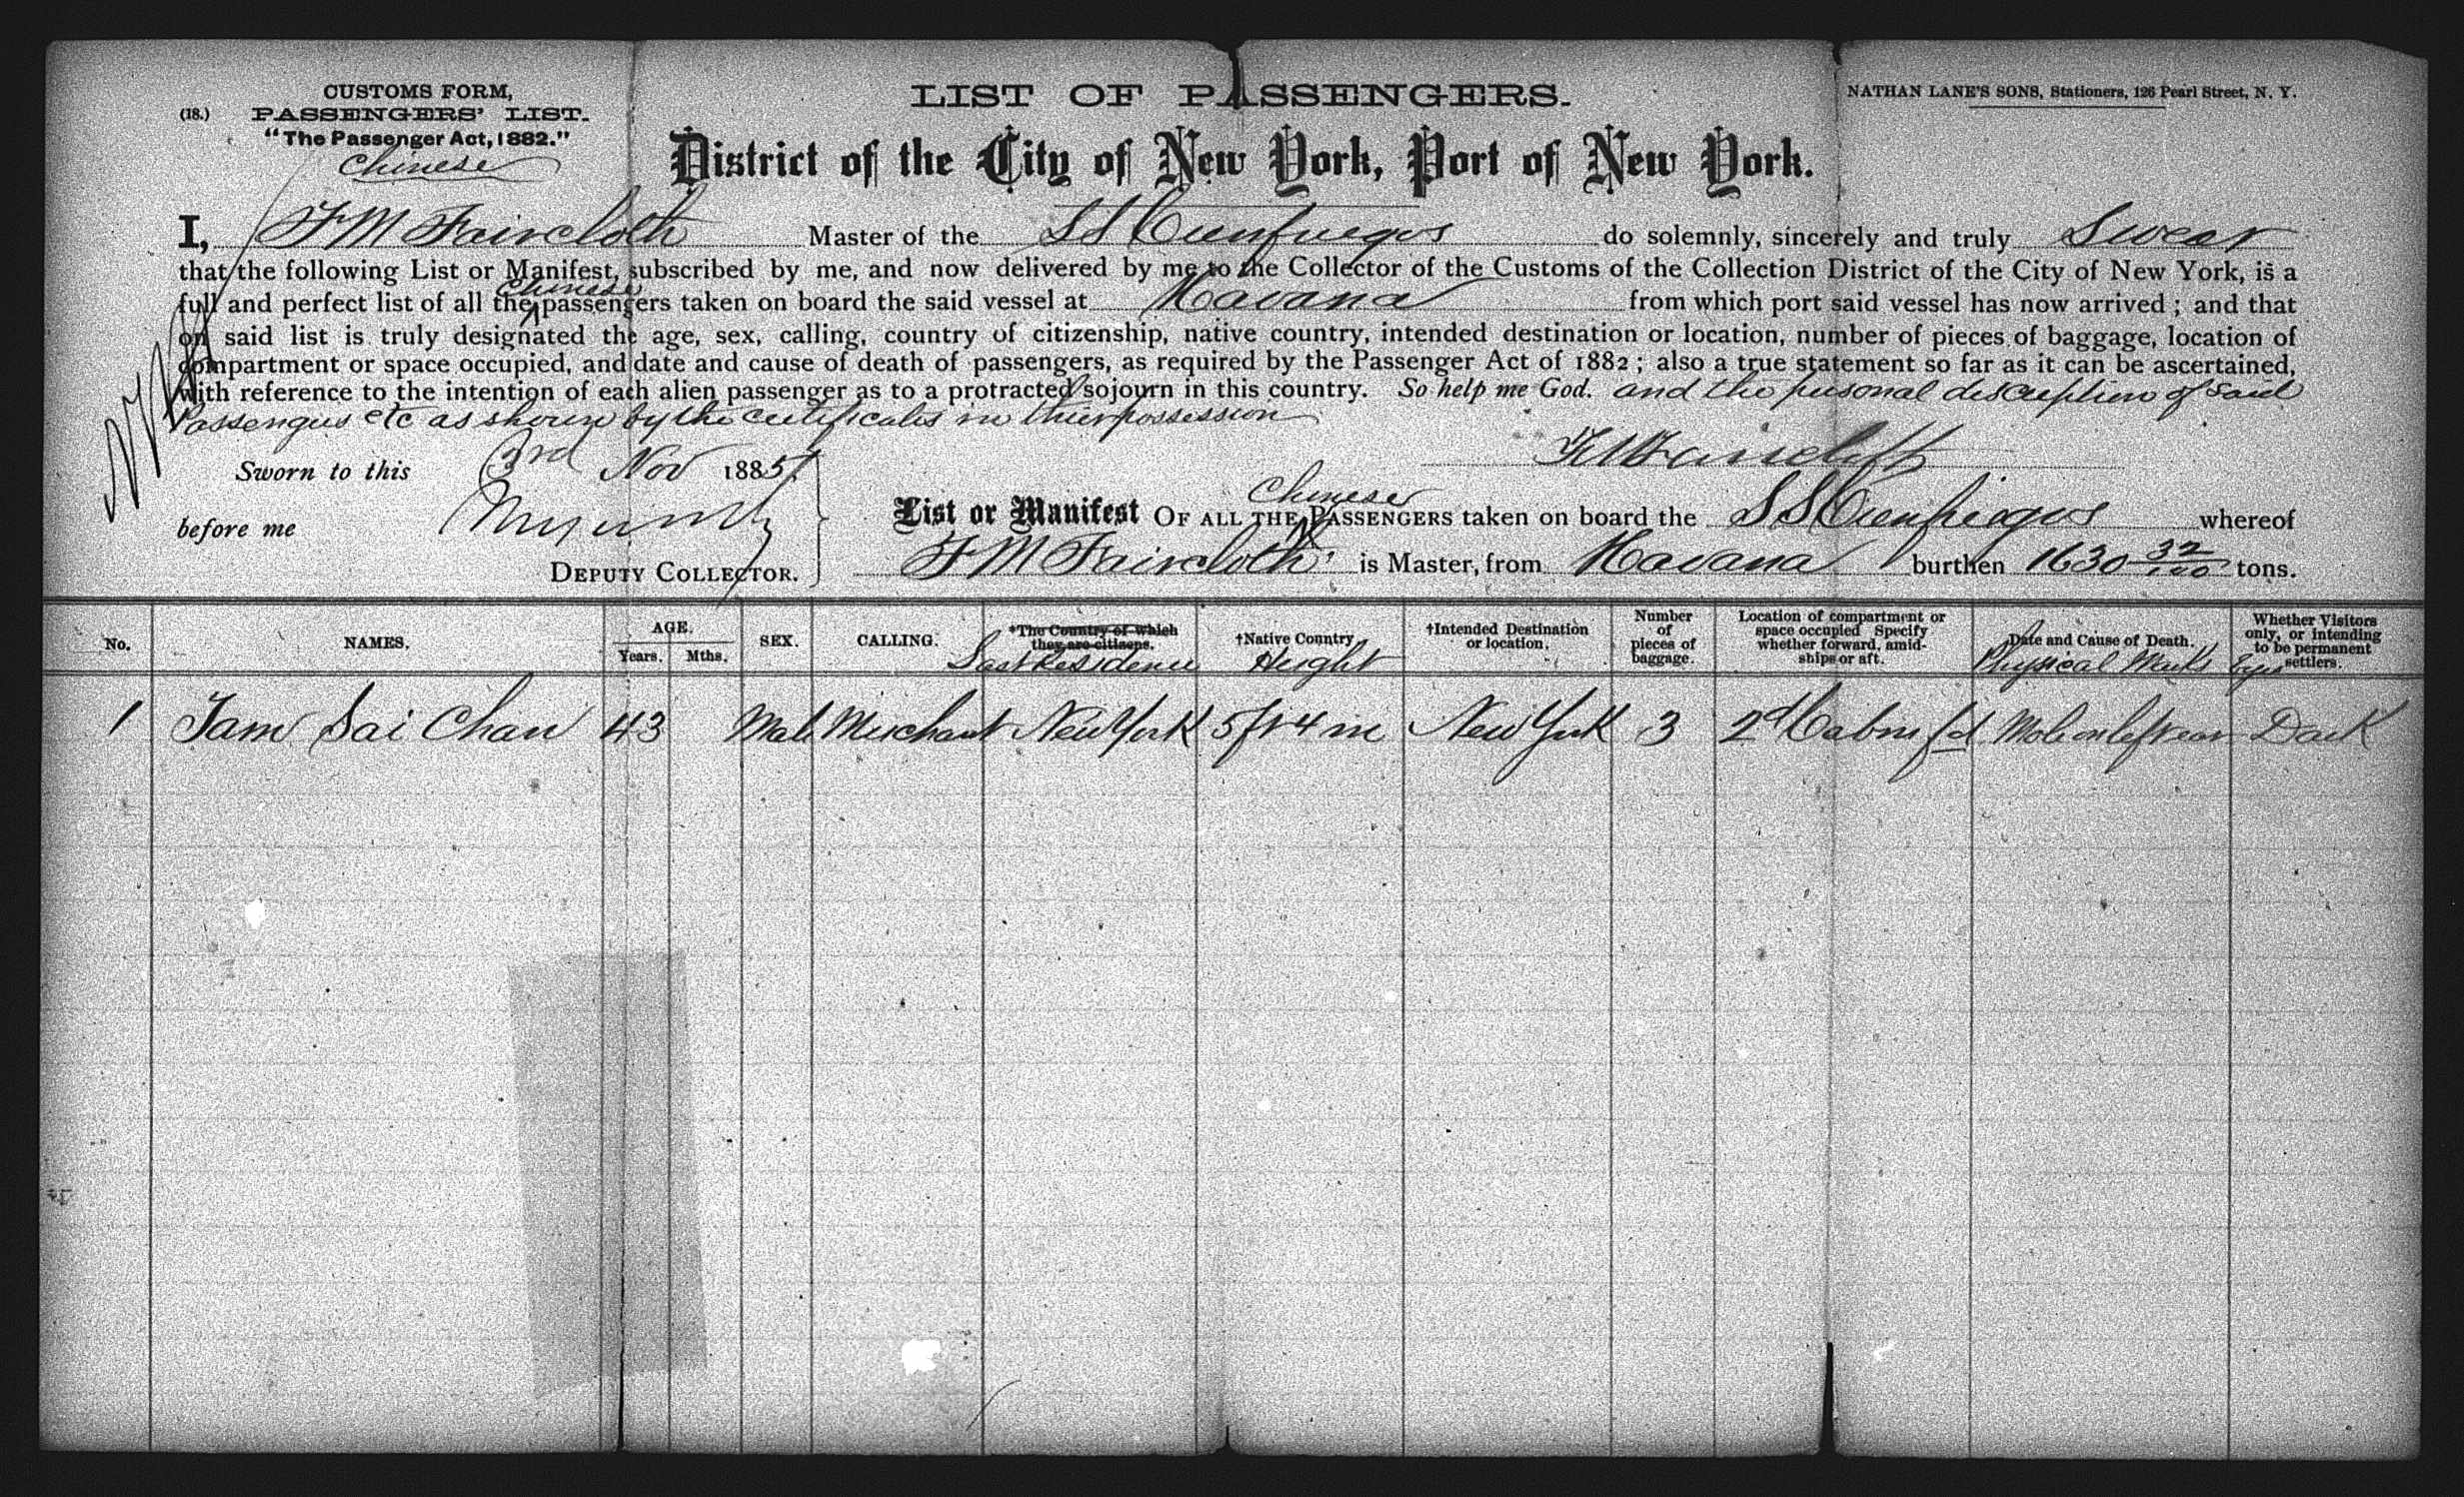 CUSTOMS FORM,
(18.) PASSENGERS' LIST.
"The Passenger Act, 1882."
Chinese
LIST OF PASSENGERS.
NATHAN LANE'S SONS, Stationers, 126 Pearl Street, N. Y.
District of the City of New York, Port of New York.
I, F M Faircloth Master of the S S Cienfuegos do solemnly, sincerely and truly Swear
that the following List or Manifest, subscribed by me, and now delivered by me to the Collector of the Customs of the Collection District of the City of New York, is a
Chinese
full and perfect list of all the passengers taken on board the said vessel at Havana from which port said vessel has now arrived ; and that
on said list is truly designated the age, sex, calling, country of citizenship, native country, intended destination or location, number of pieces of baggage, location of
compartment or space occupied, and date and cause of death of passengers, as required by the Passenger Act of 1882 ; also a true statement so far as it can be ascertained,
with reference to the intention of each alien passenger as to a protracted sojourn in this country. So help me God. and the personal description of said
Passengers etc as shown by the certificates in their possession
F M Faircloth
Sworn to this 3rd Nov 1885
before me
DEPUTY COLLECTOR.
Chinese
List or Manifest OF ALL THE PASSENGERS taken on board the S S Cienfuegos whereof
F M Faircloth is Master, from Havana burthen 1630 32/100 tons.
No. NAMES. AGE. Years. Mths. SEX. CALLING. *The Country of which they are citizens. Last Residence †Native Country Height †Intended Destination or location. Number of pieces of baggage. Location of compartment or space occupied Specify whether forward, amidships or aft. Date and Cause of Death. Physical Marks Whether Visitors only, or intending to be permanent settlers. Eyes
1 Tam Sai Chan 43 Male Merchant New York 5ft 4 in New York 3 2d Cabin fd Mole on left ear Dark